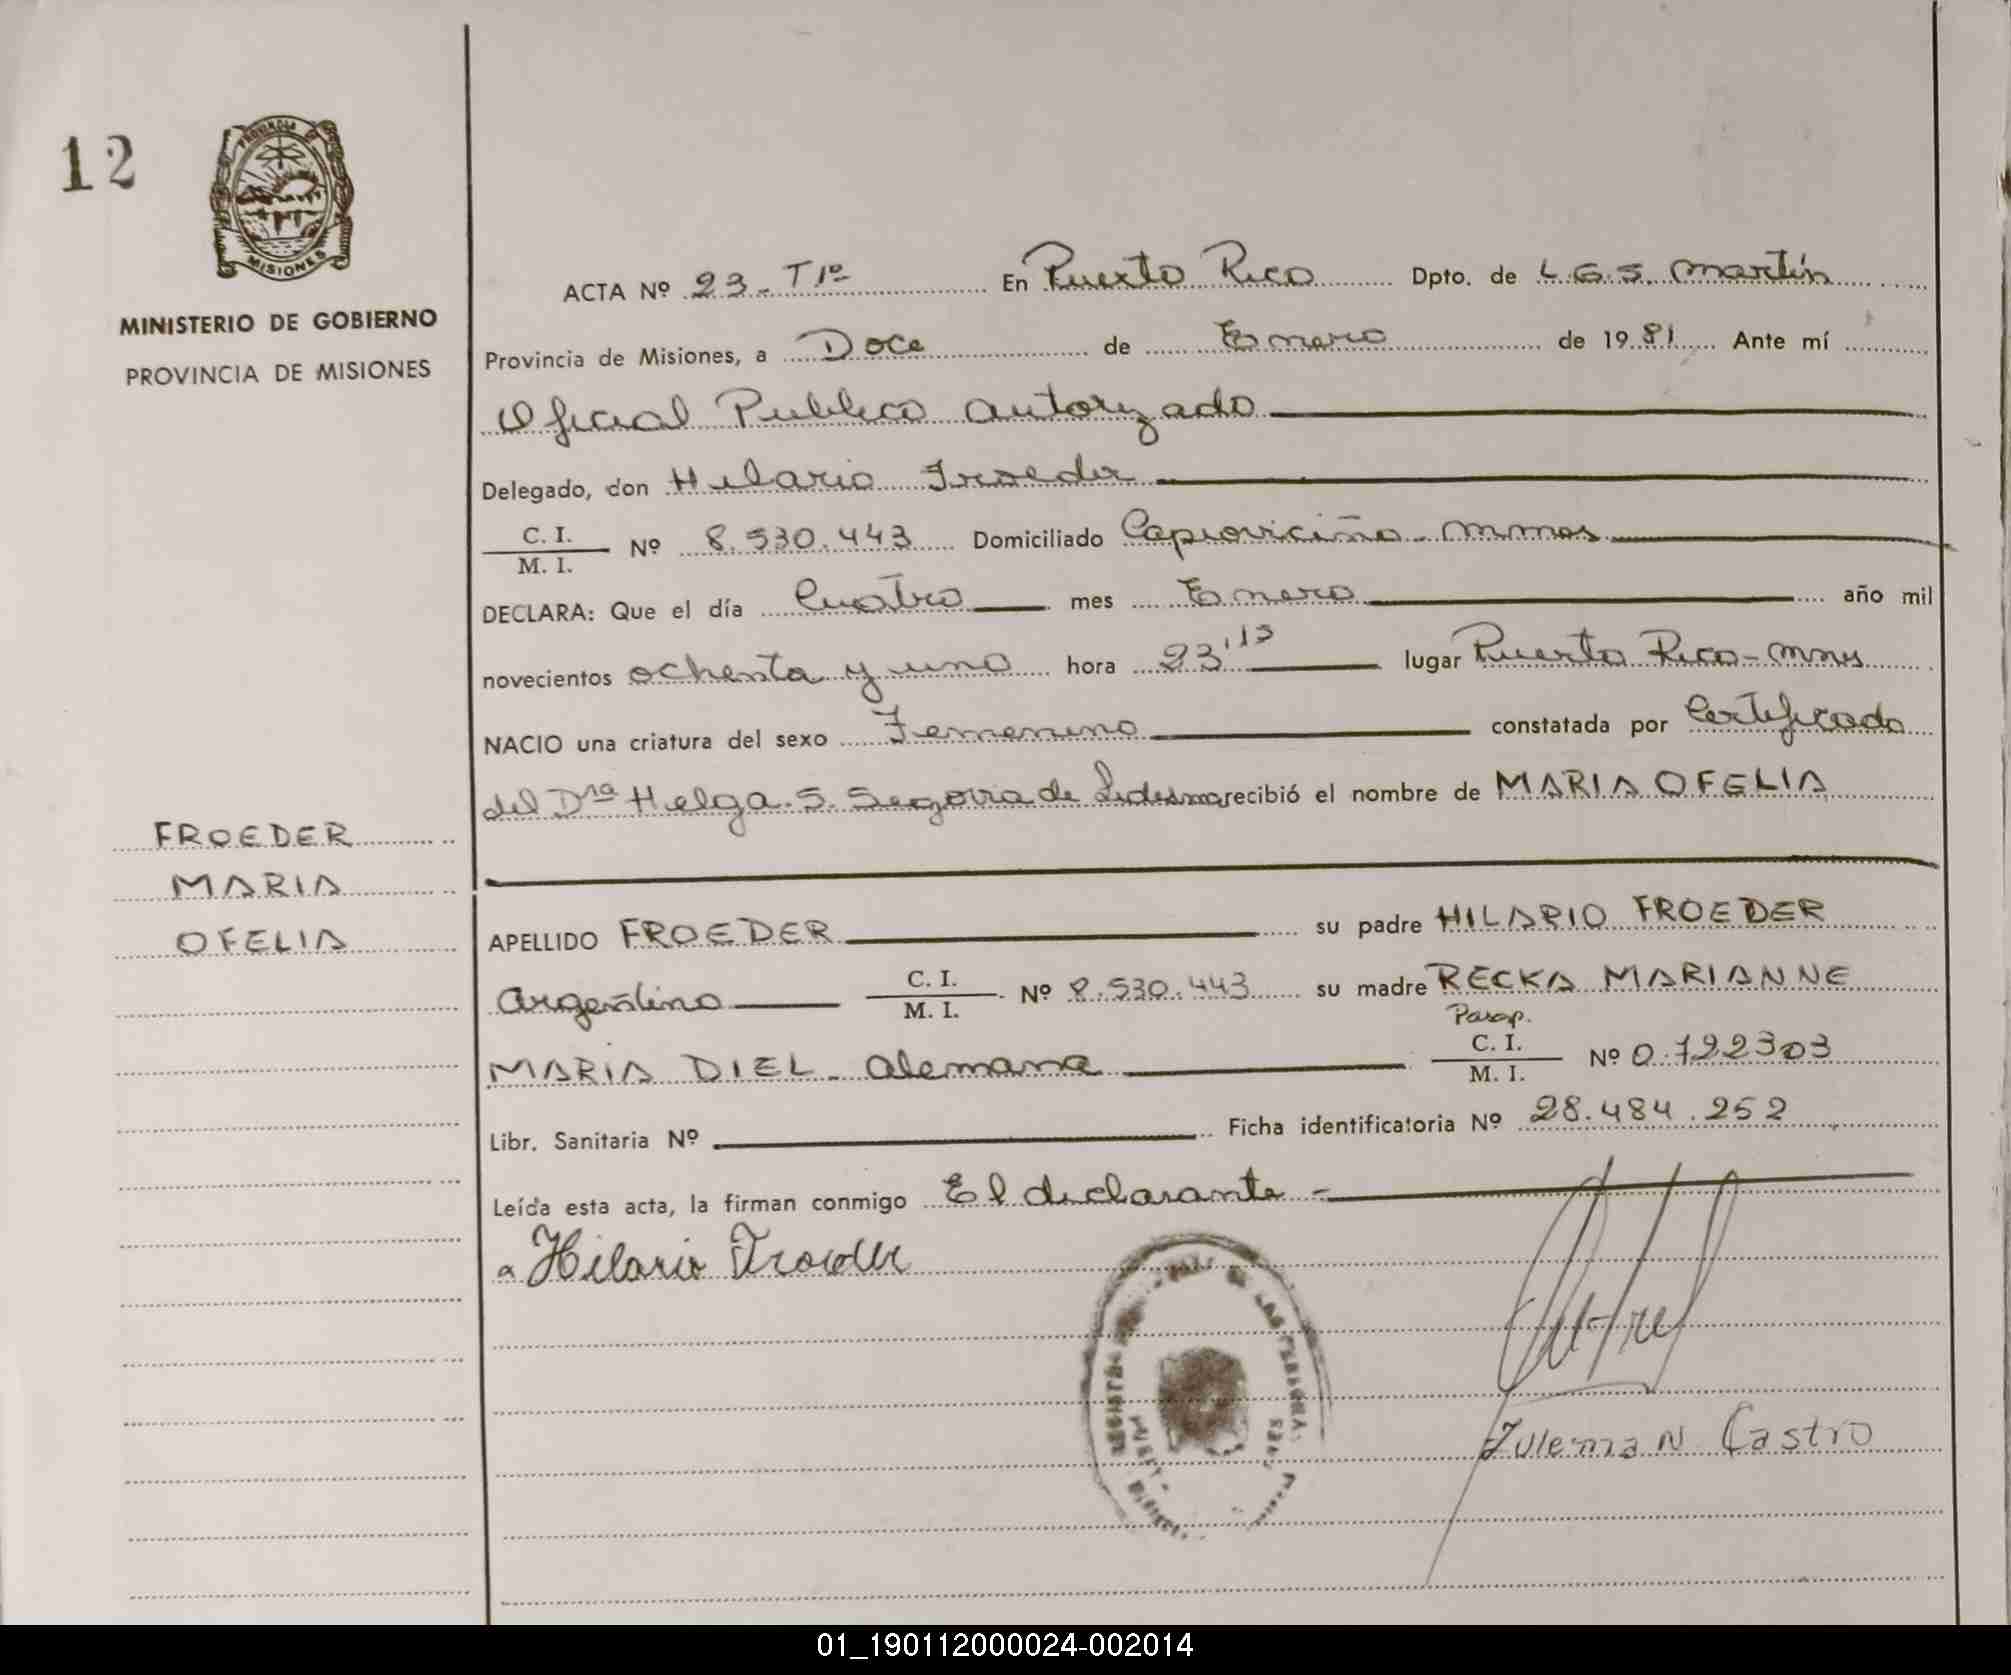 12
PROVINCIA DE
MISIONES
MINISTERIO DE GOBIERNO
PROVINCIA DE MISIONES
FROEDER
MARIA
OFELIA
ACTA Nº 23 - Tº 1º En Puerto Rico Dpto. de L.G.S. Martín
Provincia de Misiones, a Doce de Enero de 1981 Ante mí
Oficial Publico autorizado
Delegado, don Hilario Froeder
C. I. / M. I. Nº 8.530.443 Domiciliado Capioviciño - Mnes
DECLARA: Que el día Cuatro mes Enero año mil
novecientos ochenta y uno hora 23,15 lugar Puerto Rico - Mnes
NACIO una criatura del sexo Femenino constatada por Certificado
del Dra Helga S. Segovia de Ledesma recibió el nombre de MARIA OFELIA
APELLIDO FROEDER su padre HILARIO FROEDER
Argentino C. I. / M. I. Nº 8.530.443 su madre RECKA MARIANNE
Pasap.
MARIA DIEL - alemana C. I. / M. I. Nº 0.722303
Libr. Sanitaria Nº Ficha identificatoria Nº 28.484.252
Leída esta acta, la firman conmigo El declarante -
Hilario Froeder
DE LAS PERSONAS
Zulema N Castro
01_190112000024-002014